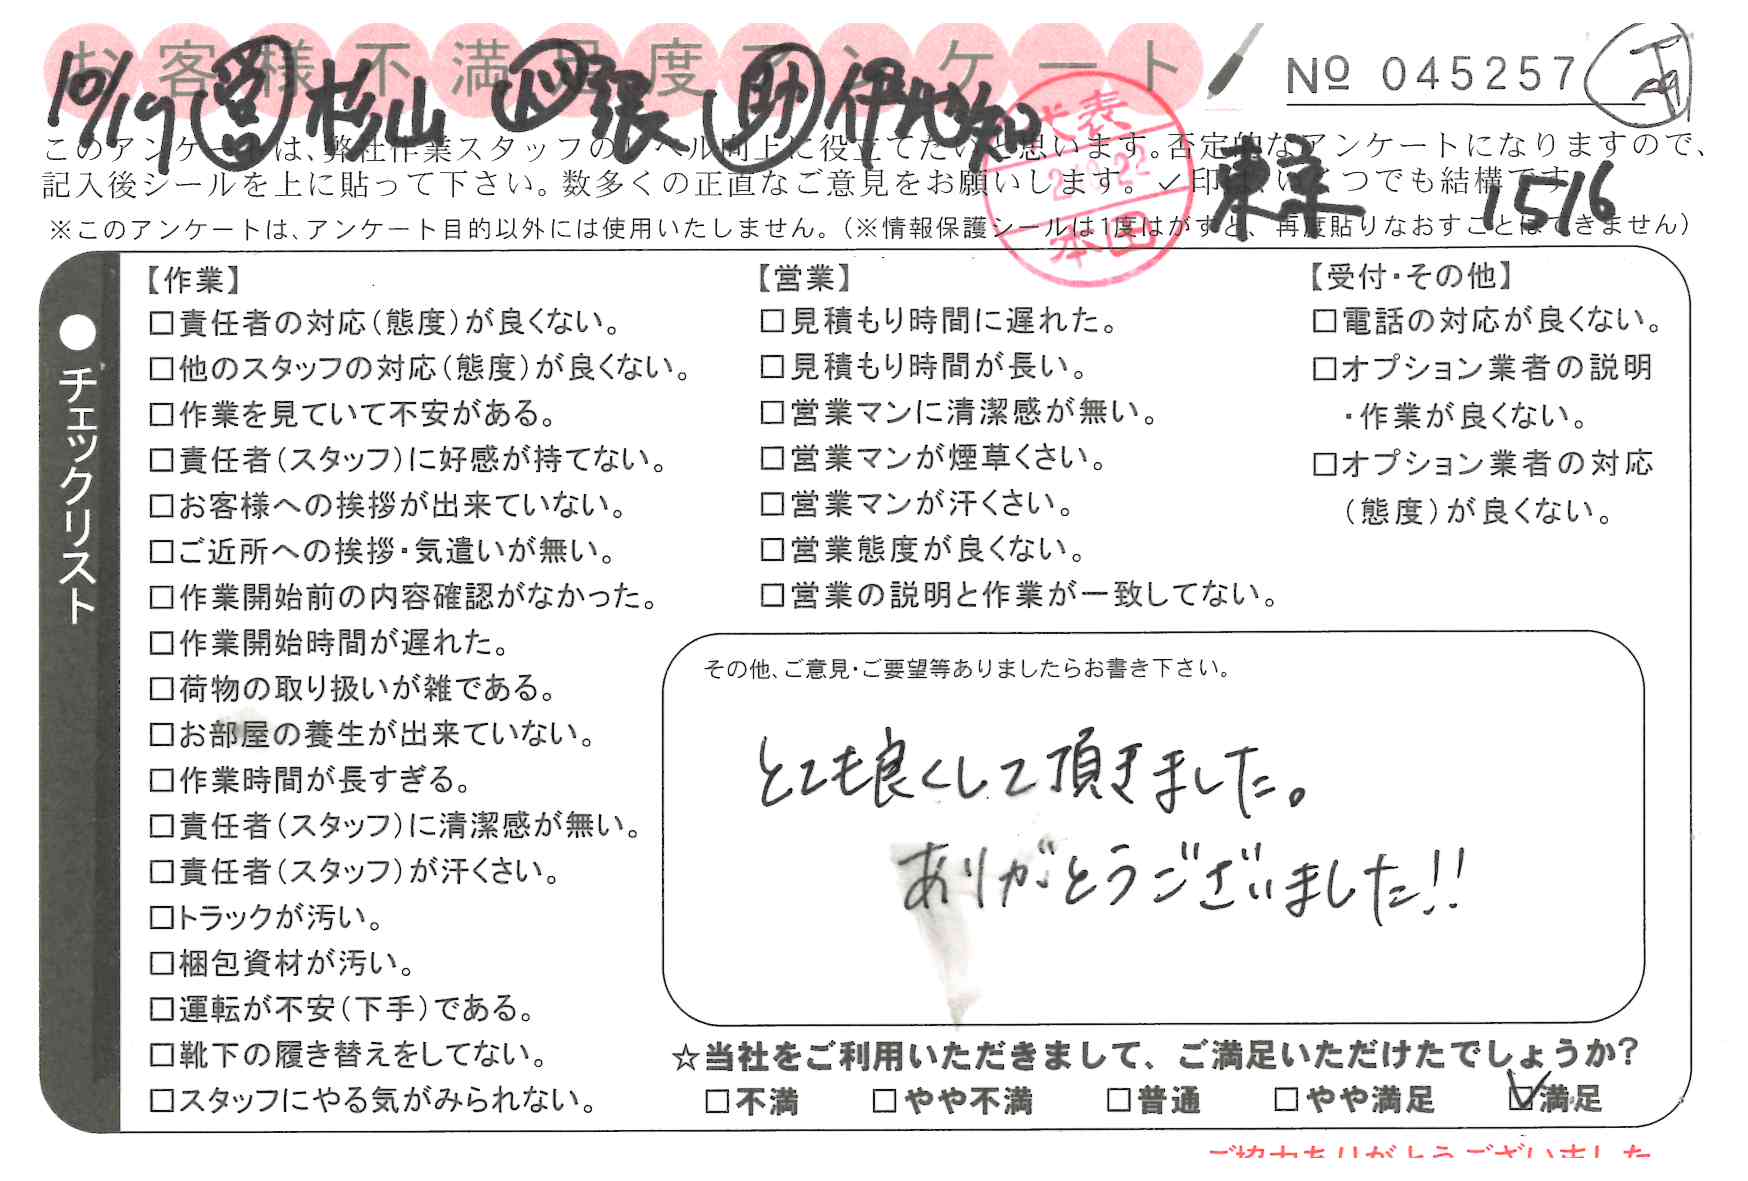 お客様不満足度アンケート
№ 045257
10/19 営 杉山 張 助 伊地知
このアンケートは、弊社作業スタッフのレベル向上に役立てたいと思います。否定的なアンケートになりますので、
記入後シールを上に貼って下さい。数多くの正直なご意見をお願いします。✓印は、いくつでも結構です。
東京 1516
代表
本田
※このアンケートは、アンケート目的以外には使用いたしません。(※情報保護シールは1度はがすと、再度貼りなおすことはできません)
●チェックリスト
【作業】
□責任者の対応(態度)が良くない。
□他のスタッフの対応(態度)が良くない。
□作業を見ていて不安がある。
□責任者(スタッフ)に好感が持てない。
□お客様への挨拶が出来ていない。
□ご近所への挨拶・気遣いが無い。
□作業開始前の内容確認がなかった。
□作業開始時間が遅れた。
□荷物の取り扱いが雑である。
□お部屋の養生が出来ていない。
□作業時間が長すぎる。
□責任者(スタッフ)に清潔感が無い。
□責任者(スタッフ)が汗くさい。
□トラックが汚い。
□梱包資材が汚い。
□運転が不安(下手)である。
□靴下の履き替えをしてない。
□スタッフにやる気がみられない。
【営業】
□見積もり時間に遅れた。
□見積もり時間が長い。
□営業マンに清潔感が無い。
□営業マンが煙草くさい。
□営業マンが汗くさい。
□営業態度が良くない。
□営業の説明と作業が一致してない。
【受付・その他】
□電話の対応が良くない。
□オプション業者の説明
・作業が良くない。
□オプション業者の対応
(態度)が良くない。
その他、ご意見・ご要望等ありましたらお書き下さい。
とても良くして頂きました。
ありがとうございました!!
☆当社をご利用いただきまして、ご満足いただけたでしょうか?
□不満 □やや不満 □普通 □やや満足 ☑満足
ご協力ありがとうございました